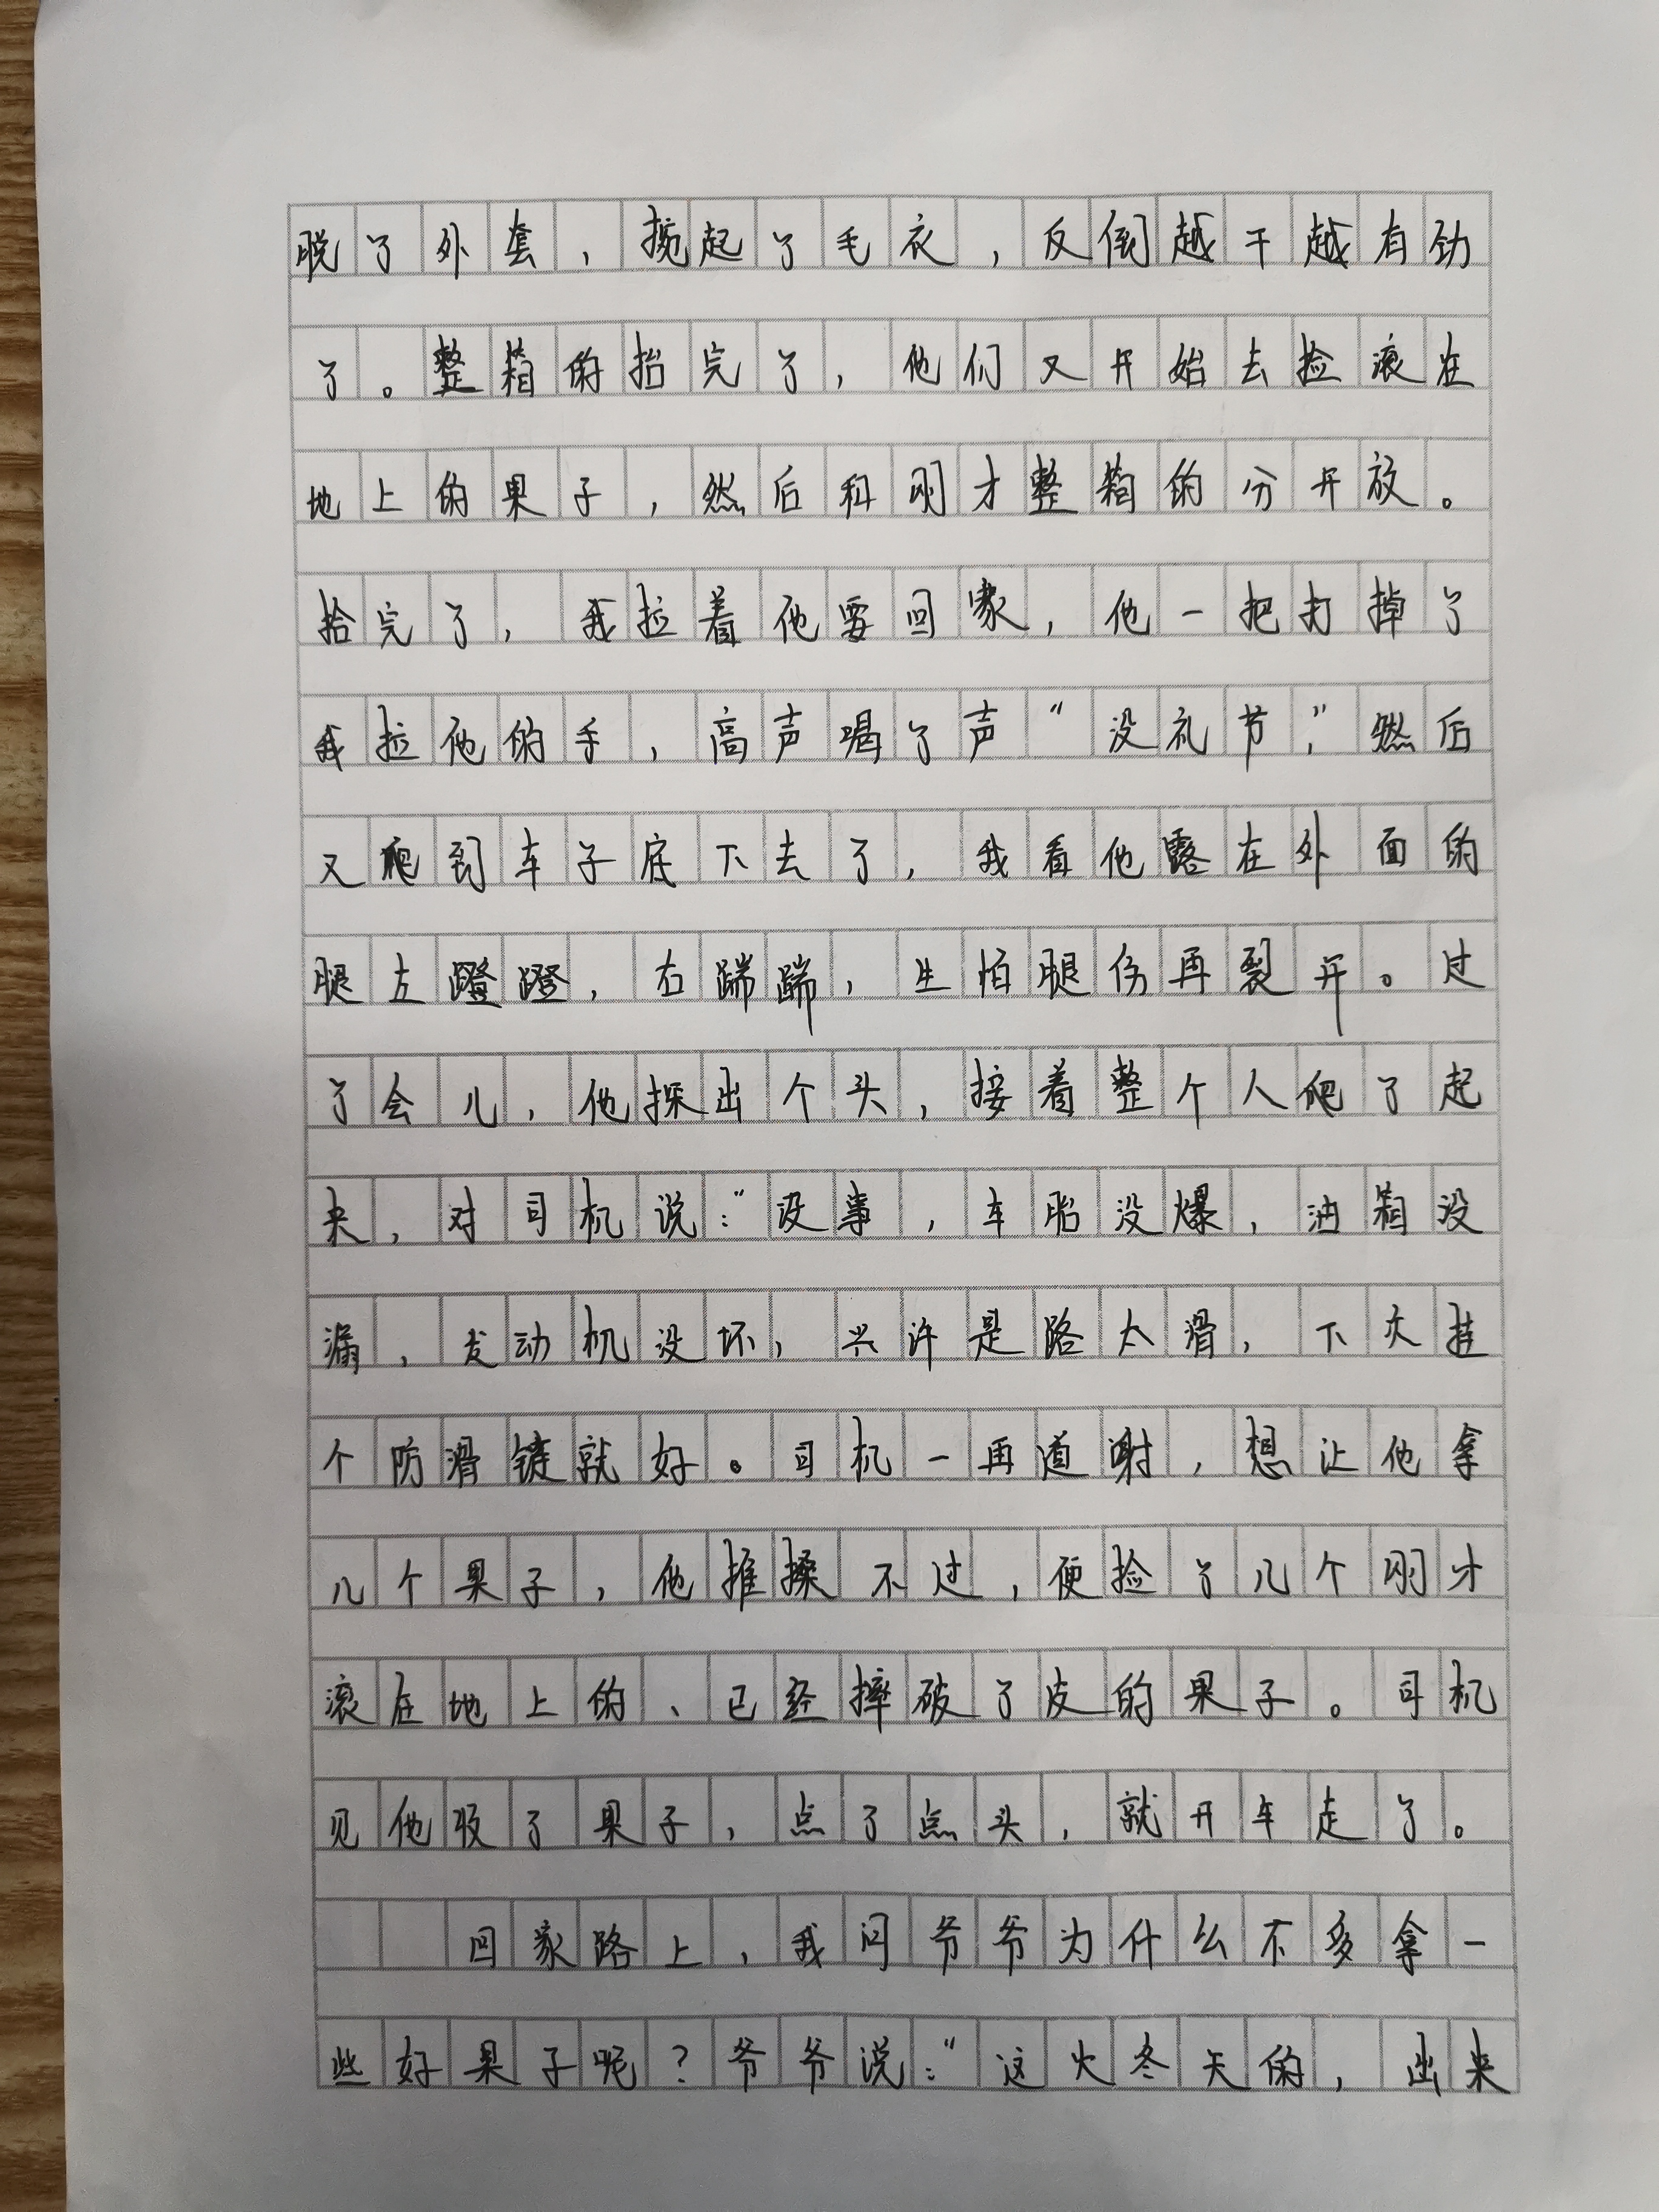 脱了外套，揽起了毛衣，反倒越干越有劲
了。整箱的抬完了，他们又开始去捡滚在
地上的果子，然后和刚才整箱的分开放。
拾完了，我拉着他要回家，他一把打掉了
我拉他的手，高声喝了声“没礼节，”然后
又爬到车子底下去了，我看他露在外面的
腿左蹬蹬，右踹踹，生怕腿伤再裂开。过
了会儿，他探出个头，接着整个人爬了起
来，对司机说：“没事，车胎没爆，油箱没
漏，发动机没坏，兴许是路太滑，下次挂
个防滑链就好。司机一再道谢，想让他拿
几个果子，他推搡不过，便捡了几个刚才
滚在地上的、已经摔破了皮的果子。司机
见他收了果子，点了点头，就开车走了。
回家路上，我问爷爷为什么不多拿一
些好果子呢？爷爷说：“这大冬天的，出来